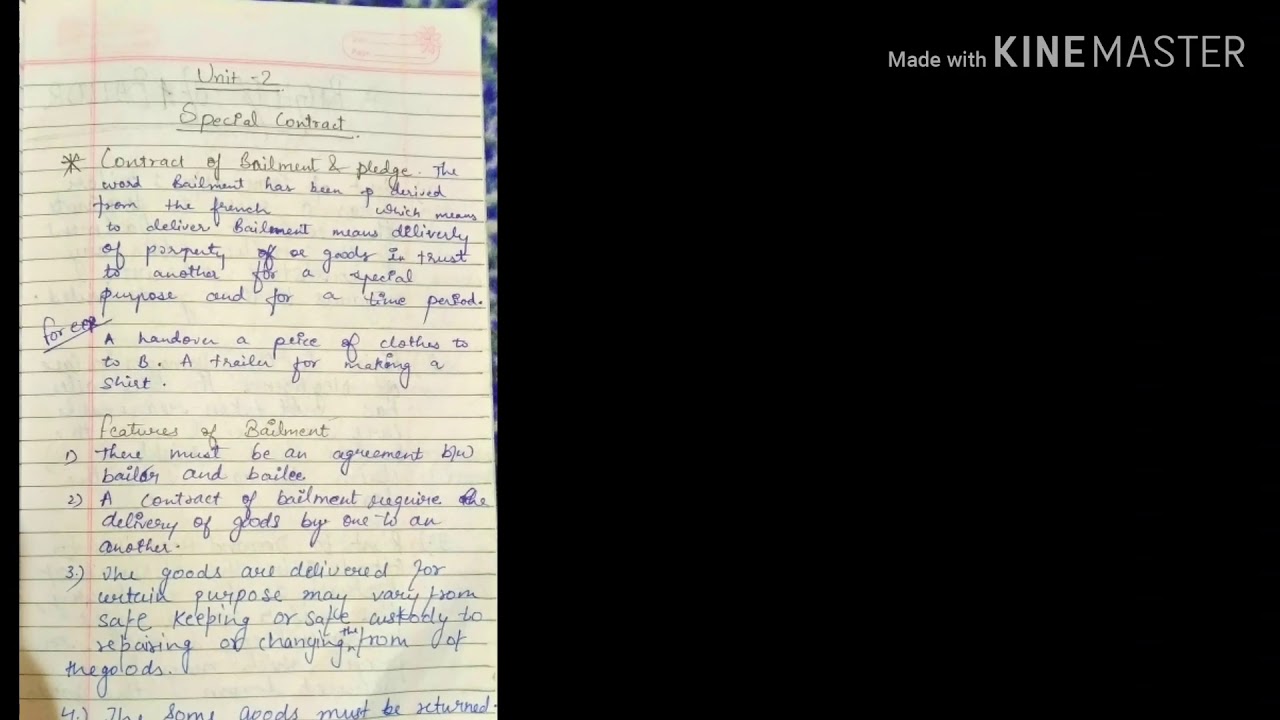 Made with KINEMASTER
Unit -2
Special Contract.
* Contract of Bailment & pledge. The
word Bailment has been derived
from the french which means
to deliver Bailment means dileverly
of porperty or goods in trust
to another for a special
purpose and for a time period.
for
A handover a peice of clothes to
to B. A trailer for making a
Shirt.
features of Bailment
1) There must be an agreement b/w
bailor and bailee
2) A Contract of bailment require the
delivery of goods by one to an
another.
3.) The goods are delivered for
certain purpose may vary from
safe keeping or safe custody to
repairing or changing the from of
the goods.
4.) The Some goods must be returned.